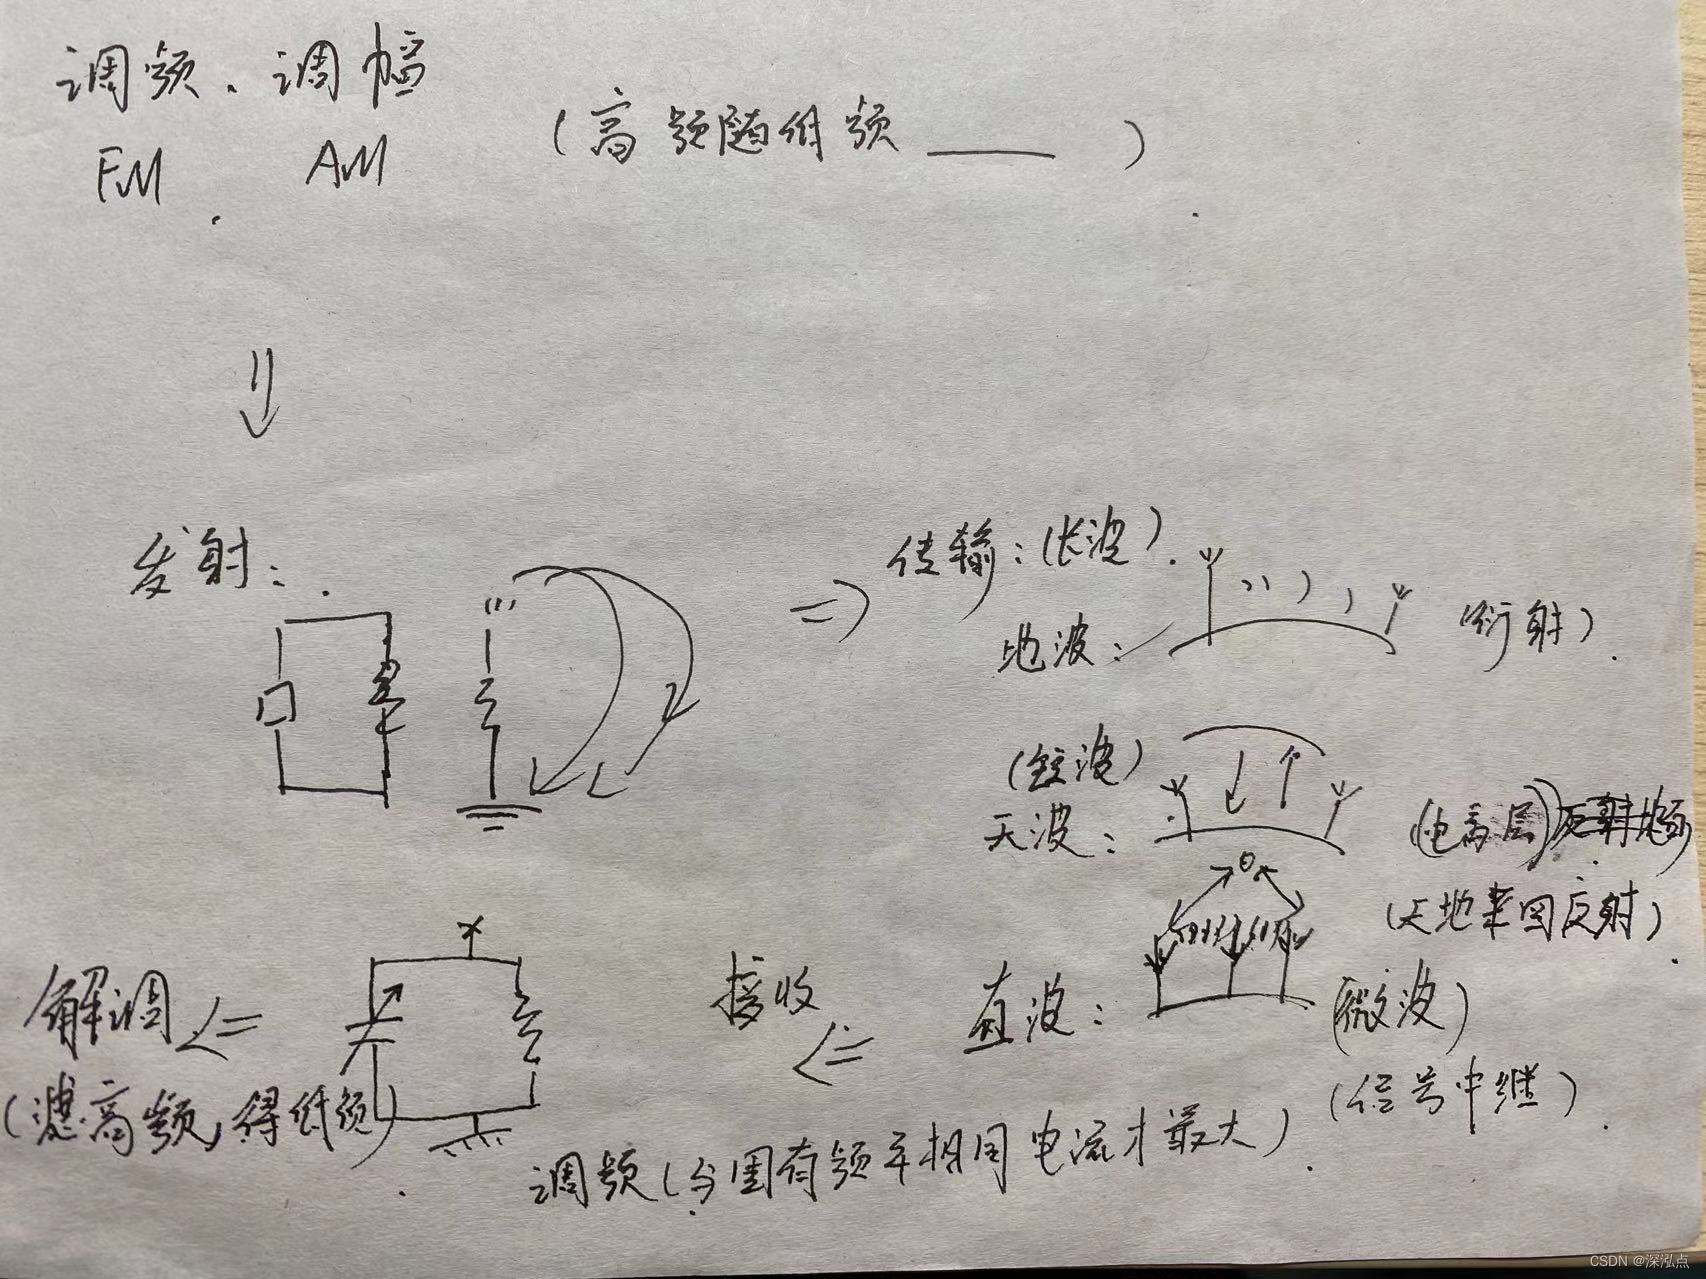 调频、调幅
FM AM
(高频随低频 ____ )
发射:
传输:(长波)
地波: (衍射)
(短波)
天波: (电离层)
(天地来回反射)
直波: (微波)
(信号中继)
接收
调频(与固有频率相同电流才最大)
解调
(滤高频,得低频)
CSDN @深泓点